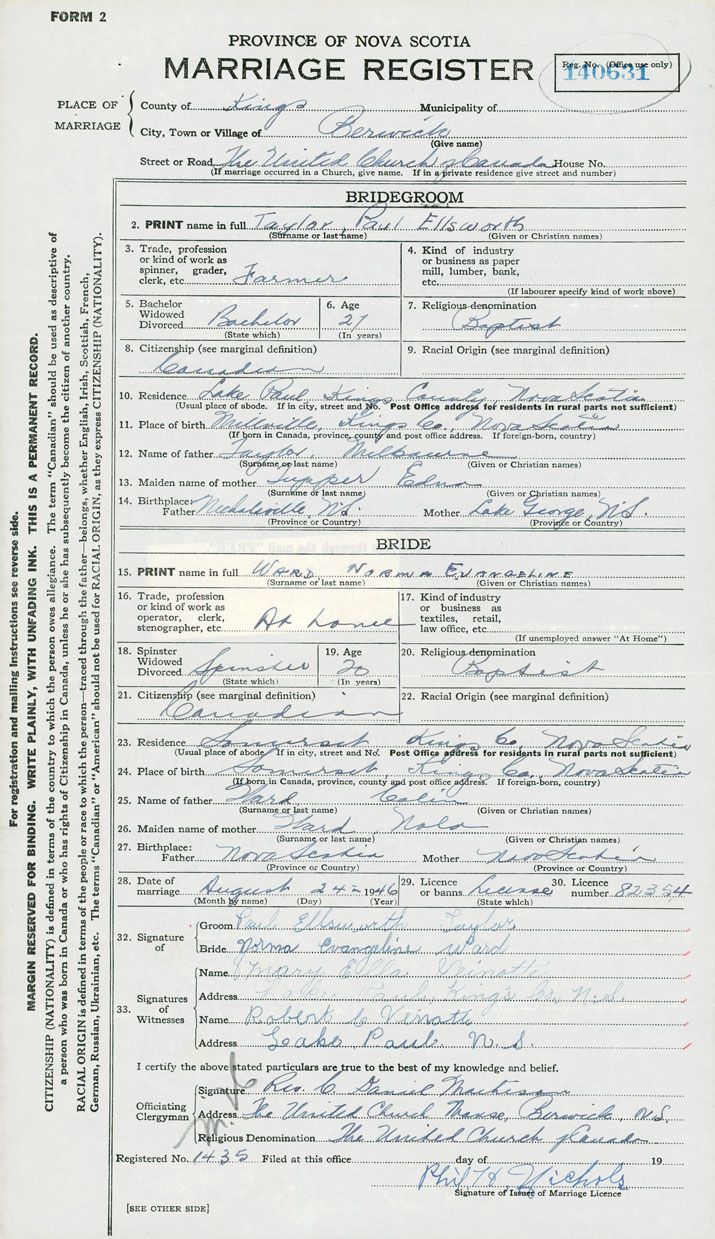 FORM 2
PROVINCE OF NOVA SCOTIA
MARRIAGE REGISTER
Reg. No. (Office use only)
140631
PLACE OF MARRIAGE
County of Kings Municipality of
City, Town or Village of Berwick
(Give name)
Street or Road The United Church of Canada House No.
(If marriage occurred in a Church, give name. If in a private residence give street and number)
BRIDEGROOM
2. PRINT name in full Taylor, Paul Ellsworth
(Surname or last name) (Given or Christian names)
3. Trade, profession or kind of work as spinner, grader, clerk, etc. Farmer
4. Kind of industry or business as paper mill, lumber, bank, etc.
(If labourer specify kind of work above)
5. Bachelor Widowed Divorced Bachelor
(State which)
6. Age 27
(In years)
7. Religious denomination
Baptist
8. Citizenship (see marginal definition)
Canadian
9. Racial Origin (see marginal definition)
10. Residence Lake Paul Kings County, Nova Scotia
(Usual place of abode. If in city, street and No. Post Office address for residents in rural parts not sufficient)
11. Place of birth Millville, Kings Co., Nova Scotia
(If born in Canada, province, county and post office address. If foreign-born, country)
12. Name of father Taylor, Milbourne
(Surname or last name) (Given or Christian names)
13. Maiden name of mother Tupper Edna
(Surname or last name) (Given or Christian names)
14. Birthplace: Father Nicholsville, N.S. Mother Lake George, N.S.
(Province or Country) (Province or Country)
BRIDE
15. PRINT name in full WARD, NORMA EVANGELINE
(Surname or last name) (Given or Christian names)
16. Trade, profession or kind of work as operator, clerk, stenographer, etc. At home
17. Kind of industry or business as textiles, retail, law office, etc.
(If unemployed answer "At Home")
18. Spinster Widowed Divorced Spinster
(State which)
19. Age 20
(In years)
20. Religious denomination
Baptist
21. Citizenship (see marginal definition)
Canadian
22. Racial Origin (see marginal definition)
23. Residence Somerset Kings Co, Nova Scotia
(Usual place of abode. If in city, street and No. Post Office address for residents in rural parts not sufficient)
24. Place of birth Somerset Kings Co., Nova Scotia
(If born in Canada, province, county and post office address. If foreign-born, country)
25. Name of father Ward Colin
(Surname or last name) (Given or Christian names)
26. Maiden name of mother Ward Nola
(Surname or last name) (Given or Christian names)
27. Birthplace: Father Nova Scotia Mother Nova Scotia
(Province or Country) (Province or Country)
28. Date of marriage August 24 - 1946
(Month by name) (Day) (Year)
29. Licence or banns License
(State which)
30. Licence number 82354
32. Signature of
Groom Paul Ellsworth Taylor
Bride Norma Evangeline Ward
33. Signatures of Witnesses
Name Mary Ella
Address Lake Paul, King's Co. N.S.
Name Robert C
Address Lake Paul N.S.
I certify the above stated particulars are true to the best of my knowledge and belief.
Officiating Clergyman
Signature Rev. C Daniel
Address The United Church Manse, Berwick, N.S.
Religious Denomination The United Church of Canada
Registered No. 1435 Filed at this office day of 19
Phil H. Nichols
Signature of Issuer of Marriage Licence
[SEE OTHER SIDE]
For registration and mailing instructions see reverse side.
MARGIN RESERVED FOR BINDING. WRITE PLAINLY, WITH UNFADING INK. THIS IS A PERMANENT RECORD.
CITIZENSHIP (NATIONALITY) is defined in terms of the country to which the person owes allegiance. The term "Canadian" should be used as descriptive of
a person who was born in Canada or who has rights of Citizenship in Canada, unless he or she has subsequently become the citizen of another country.
RACIAL ORIGIN is defined in terms of the people or race to which the person—traced through the father—belongs, whether English, Irish, Scottish, French,
German, Russian, Ukrainian, etc. The terms "Canadian" or "American" should not be used for RACIAL ORIGIN, as they express CITIZENSHIP (NATIONALITY).